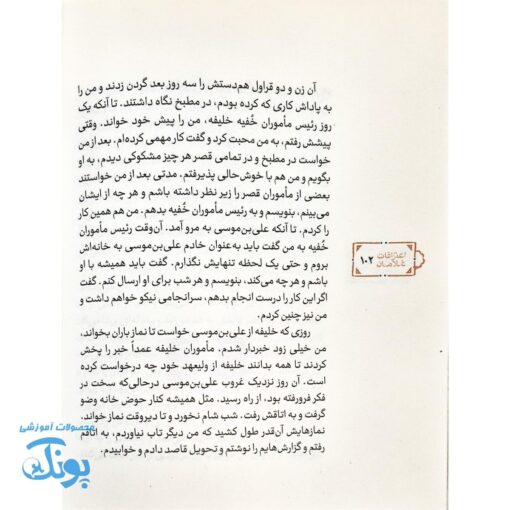 آن زن و دو قراول هم‌دستش را سه روز بعد گردن زدند و من را
به پاداش کاری که کرده بودم، در مطبخ نگاه داشتند. تا آنکه یک
روز رئیس مأموران خُفیه خلیفه، من را پیش خود خواند. وقتی
پیشش رفتم، به من محبت کرد و گفت کار مهمی کرده‌ام. بعد از من
خواست در مطبخ و در تمامی قصر هر چیز مشکوکی دیدم، به او
بگویم و من هم با خوش‌حالی پذیرفتم. مدتی بعد از من خواستند
بعضی از مأموران قصر را زیر نظر داشته باشم و هر چه از ایشان
می‌بینم، بنویسم و به رئیس مأموران خُفیه بدهم. من هم همین کار
را کردم. تا آنکه علی‌بن‌موسی به مرو آمد. آن‌وقت رئیس مأموران
خُفیه به من گفت باید به‌عنوان خادم علی‌بن‌موسی به خانه‌اش
بروم و حتی یک لحظه تنهایش نگذارم. گفت باید همیشه با او
باشم و هر چه می‌کند، بنویسم و هر شب برای او ارسال کنم. گفت
اگر این کار را درست انجام بدهم، سرانجامی نیکو خواهم داشت و
من نیز چنین کردم.
روزی که خلیفه از علی‌بن‌موسی خواست تا نماز باران بخواند،
من خیلی زود خبردار شدم. مأموران خلیفه عمداً خبر را پخش
کردند تا همه بدانند خلیفه از ولیعهد خود چه درخواست کرده
است. آن روز نزدیک غروب علی‌بن‌موسی درحالی‌که سخت در
فکر فرورفته بود، از راه رسید. مثل همیشه کنار حوض خانه وضو
گرفت و به اتاقش رفت. شب شام نخورد و تا دیروقت نماز خواند.
نمازهایش آن‌قدر طول کشید که من دیگر تاب نیاوردم، به اتاقم
رفتم و گزارش‌هایم را نوشتم و تحویل قاصد دادم و خوابیدم.
اعترافات
غلامان
۱۰۲
محصولات آموزشی
پونک